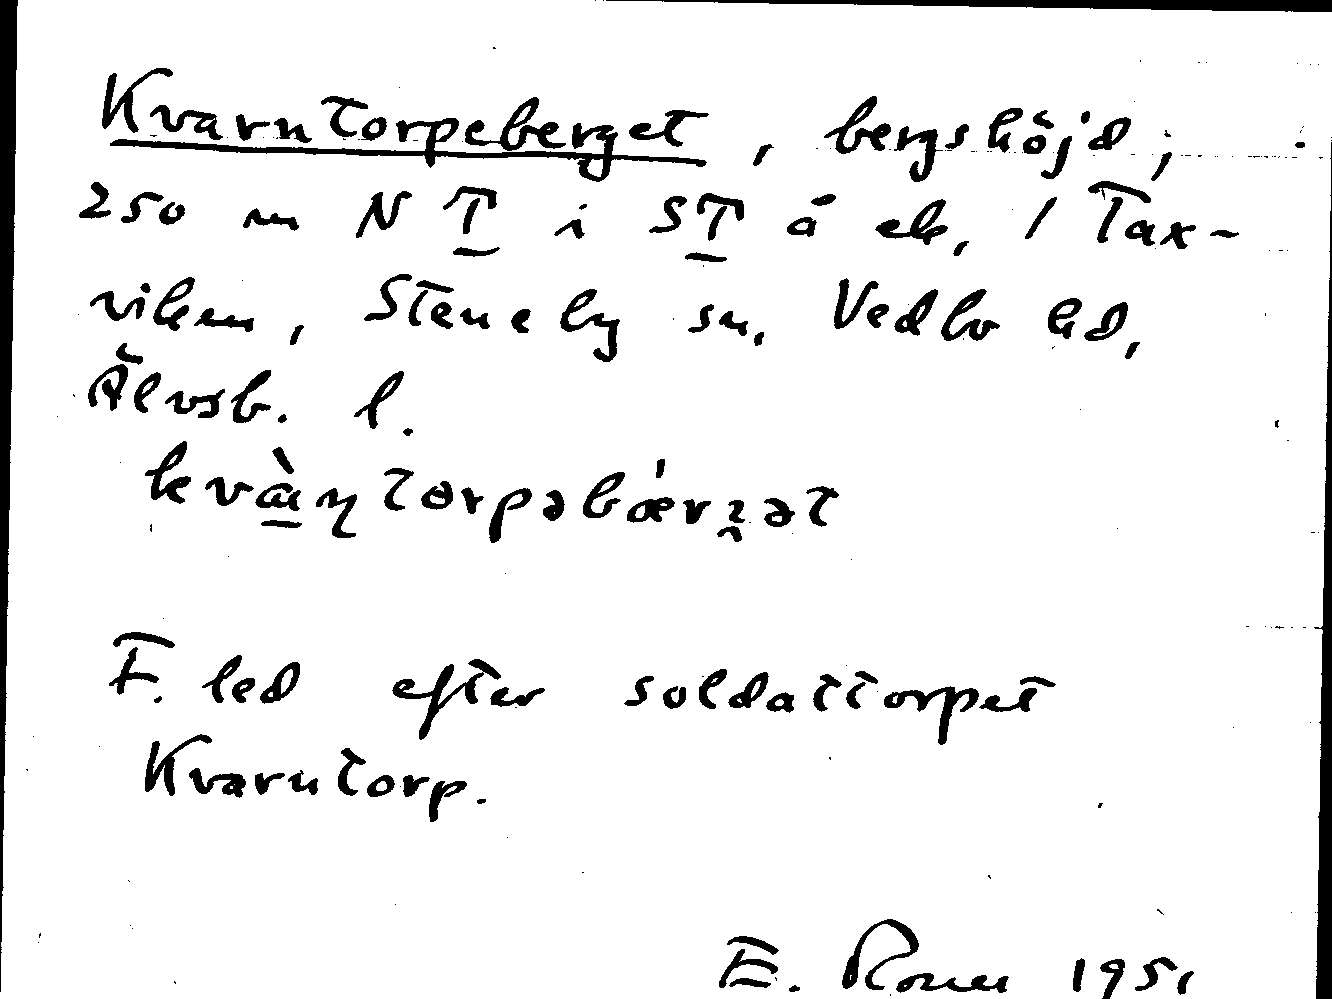 Kvarntorpeberget, bergshöjd,
250 m N T i ST å ek. / Tax-
viken, Steneby sn, Vedbo hd,
Älvsb. l.
kvà̱ɳtorpəbǽrʓət
F. led efter soldattorpet
Kvarntorp.
E. 1951